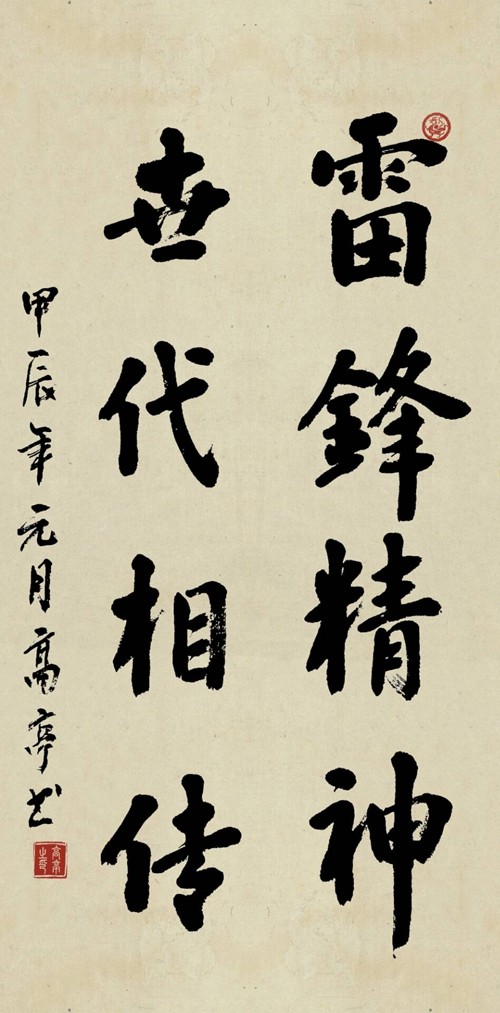 雷鋒精神
世代相传
甲辰年元月高亭书